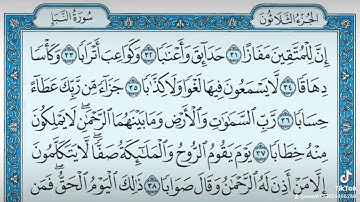 الجزء الثلاثون
سورة النبإ
إِنَّ لِلْمُتَّقِينَ مَفَازًا ٣١ حَدَآئِقَ وَأَعْنَٰبًا ٣٢ وَكَوَاعِبَ أَتْرَابًا ٣٣ وَكَأْسًا
دِهَاقًا ٣٤ لَّا يَسْمَعُونَ فِيهَا لَغْوًا وَلَا كِذَّٰبًا ٣٥ جَزَآءً مِّن رَّبِّكَ عَطَآءً
حِسَابًا ٣٦ رَّبِّ ٱلسَّمَٰوَٰتِ وَٱلْأَرْضِ وَمَا بَيْنَهُمَا ٱلرَّحْمَٰنِ ۖ لَا يَمْلِكُونَ
مِنْهُ خِطَابًا ٣٧ يَوْمَ يَقُومُ ٱلرُّوحُ وَٱلْمَلَٰٓئِكَةُ صَفًّا ۖ لَّا يَتَكَلَّمُونَ
إِلَّا مَنْ أَذِنَ لَهُ ٱلرَّحْمَٰنُ وَقَالَ صَوَابًا ٣٨ ذَٰلِكَ ٱلْيَوْمُ ٱلْحَقُّ ۖ فَمَن
TikTok